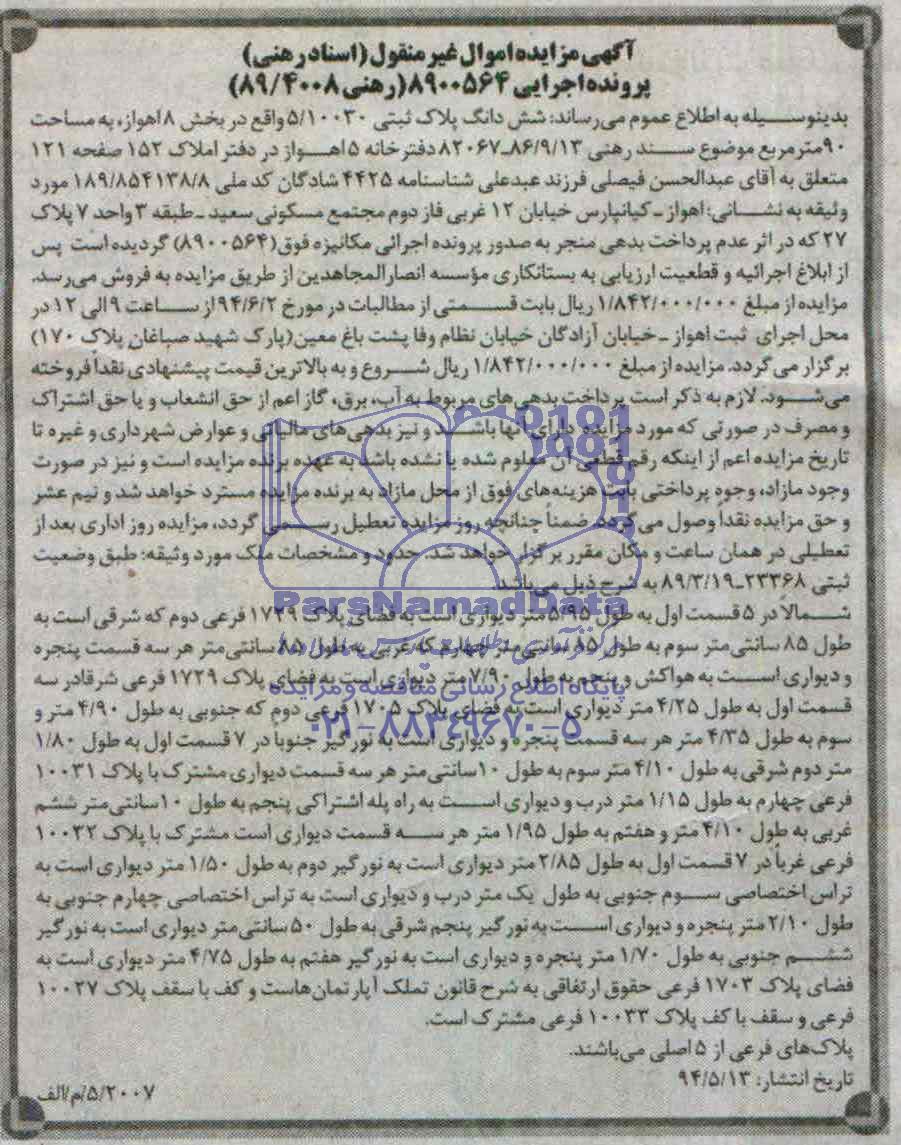 آگهی مزایده اموال غیر منقول (اسناد رهنی)
پرونده اجرایی ۸۹۰۰۵۶۴ (رهنی ۸۹/۴۰۰۸)
بدینوسیله به اطلاع عموم می‌رساند: شش دانگ پلاک ثبتی ۵/۱۰۰۳۰ واقع در بخش ۸ اهواز، به مساحت
۹۰ مترمربع موضوع سند رهنی ۸۶/۹/۱۳-۸۲۰۶۷ دفترخانه ۵ اهواز در دفتر املاک ۱۵۲ صفحه ۱۲۱
متعلق به آقای عبدالحسن فیصلی فرزند عبدعلی شناسنامه ۴۴۲۵ شادگان کد ملی ۱۸۹/۸۵۴۱۳۸/۸ مورد
وثیقه به نشانی: اهواز - کیانپارس خیابان ۱۲ غربی فاز دوم مجتمع مسکونی سعید - طبقه ۳ واحد ۷ پلاک
۲۷ که در اثر عدم پرداخت بدهی منجر به صدور پرونده اجرائی مکانیزه فوق (۸۹۰۰۵۶۴) گردیده است پس
از ابلاغ اجرائیه و قطعیت ارزیابی به بستانکاری مؤسسه انصارالمجاهدین از طریق مزایده به فروش می‌رسد.
مزایده از مبلغ ۱/۸۴۲/۰۰۰/۰۰۰ ریال بابت قسمتی از مطالبات در مورخ ۹۴/۶/۲ از ساعت ۹ الی ۱۲ در
محل اجرای ثبت اهواز - خیابان آزادگان خیابان نظام وفا پشت باغ معین (پارک شهید صباغان پلاک ۱۷۰)
برگزار می‌گردد. مزایده از مبلغ ۱/۸۴۲/۰۰۰/۰۰۰ ریال شروع و به بالاترین قیمت پیشنهادی نقداً فروخته
می‌شود. لازم به ذکر است پرداخت بدهی‌های مربوط به آب، برق، گاز اعم از حق انشعاب و یا حق اشتراک
و مصرف در صورتی که مورد مزایده دارای آنها باشد و نیز بدهی‌های مالیاتی و عوارض شهرداری و غیره تا
تاریخ مزایده اعم از اینکه رقم قطعی آن معلوم شده یا نشده باشد به عهده برنده مزایده است و نیز در صورت
وجود مازاد، وجوه پرداختی بابت هزینه‌های فوق از محل مازاد به برنده مزایده مسترد خواهد شد و نیم عشر
و حق مزایده نقداً وصول می‌گردد. ضمناً چنانچه روز مزایده تعطیل رسمی گردد، مزایده روز اداری بعد از
تعطیلی در همان ساعت و مکان مقرر برگزار خواهد شد. حدود و مشخصات ملک مورد وثیقه: طبق وضعیت
ثبتی ۲۳۳۶۸-۸۹/۳/۱۹ به شرح ذیل می‌باشد.
شمالاً در ۵ قسمت اول به طول ۵/۹۵ متر دیواری است به فضای پلاک ۱۷۲۹ فرعی دوم که شرقی است به
طول ۸۵ سانتی‌متر سوم به طول ۸۵ سانتی‌متر چهارم که غربی به طول ۸۵ سانتی‌متر هر سه قسمت پنجره
و دیواری است به هواکش و پنجم به طول ۷/۹۰ متر دیواری است به فضای پلاک ۱۷۲۹ فرعی شرقا در سه
قسمت اول به طول ۴/۲۵ متر دیواری است به فضای پلاک ۱۷۰۵ فرعی دوم که جنوبی به طول ۴/۹۰ متر و
سوم به طول ۴/۳۵ متر هر سه قسمت پنجره و دیواری است به نورگیر جنوبا در ۷ قسمت اول به طول ۱/۸۰
متر دوم شرقی به طول ۴/۱۰ متر سوم به طول ۱۰ سانتی‌متر هر سه قسمت دیواری مشترک با پلاک ۱۰۰۳۱
فرعی چهارم به طول ۱/۱۵ متر درب و دیواری است به راه پله اشتراکی پنجم به طول ۱۰ سانتی‌متر ششم
غربی به طول ۴/۱۰ متر و هفتم به طول ۱/۹۵ متر هر سه قسمت دیواری است مشترک با پلاک ۱۰۰۳۲
فرعی غرباً در ۷ قسمت اول به طول ۲/۸۵ متر دیواری است به نورگیر دوم به طول ۱/۵۰ متر دیواری است به
تراس اختصاصی سوم جنوبی به طول یک متر درب و دیواری است به تراس اختصاصی چهارم جنوبی به
طول ۲/۱۰ متر پنجره و دیواری است به نورگیر پنجم شرقی به طول ۵۰ سانتی‌متر دیواری است به نورگیر
ششم جنوبی به طول ۱/۷۰ متر پنجره و دیواری است به نورگیر هفتم به طول ۴/۷۵ متر دیواری است به
فضای پلاک ۱۷۰۳ فرعی حقوق ارتفاقی به شرح قانون تملک آپارتمان‌هاست و کف با سقف پلاک ۱۰۰۲۷
فرعی و سقف با کف پلاک ۱۰۰۳۳ فرعی مشترک است.
پلاک‌های فرعی از ۵ اصلی می‌باشند.
تاریخ انتشار: ۹۴/۵/۱۳
۵/۲۰۰۷/م/الف
ParsNamadData
پایگاه اطلاع رسانی مناقصه و مزایده
۰۲۱-۸۸۳۴۹۶۷۰-۵